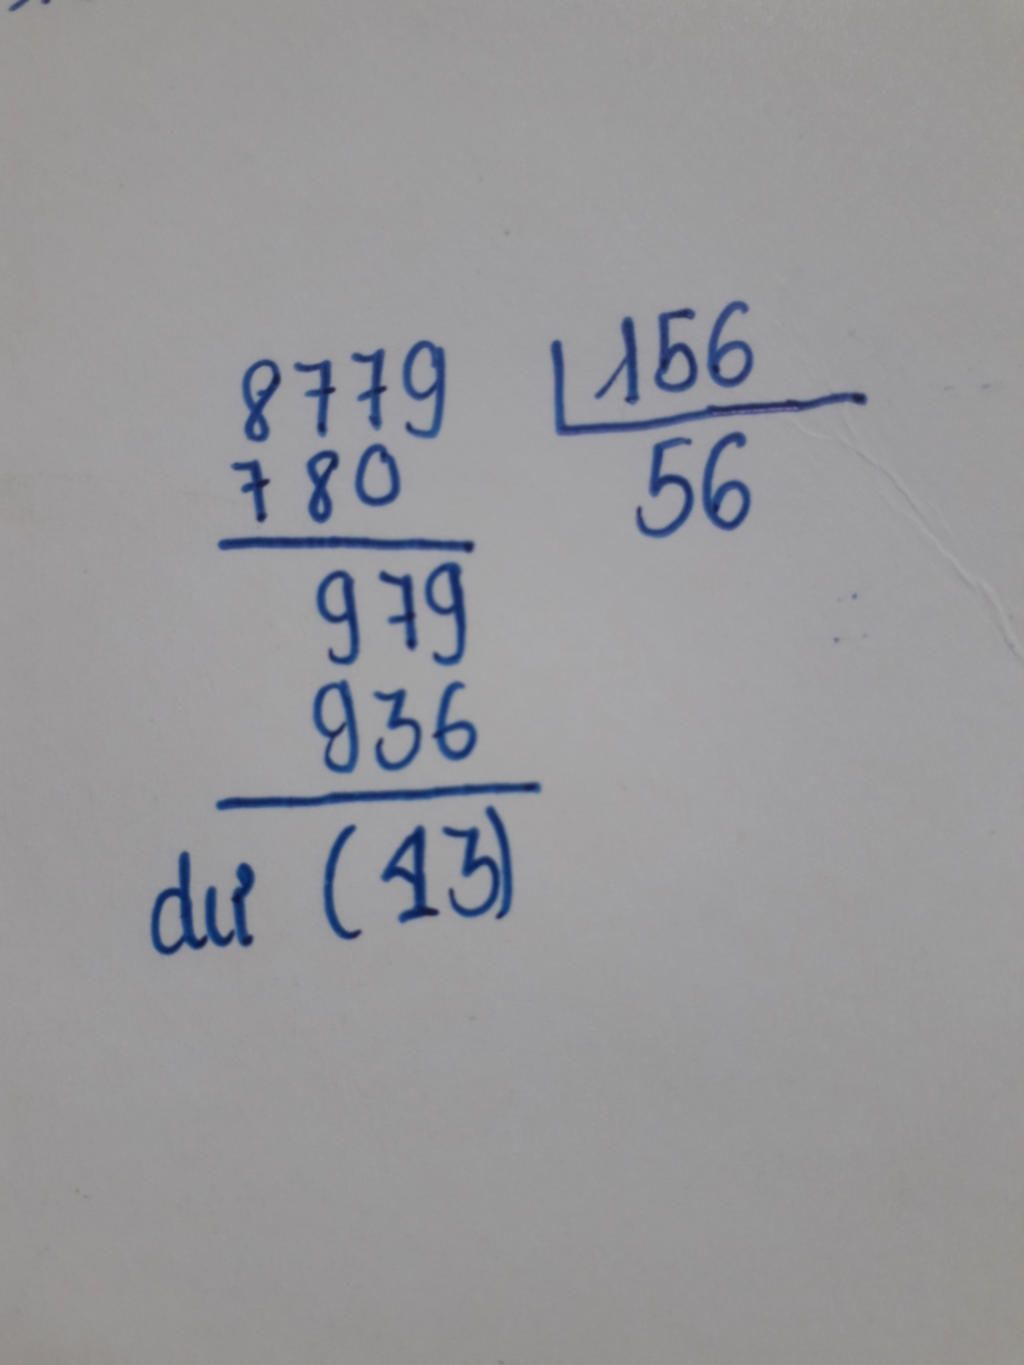 8779 156
780 56
979
936
dư (43)